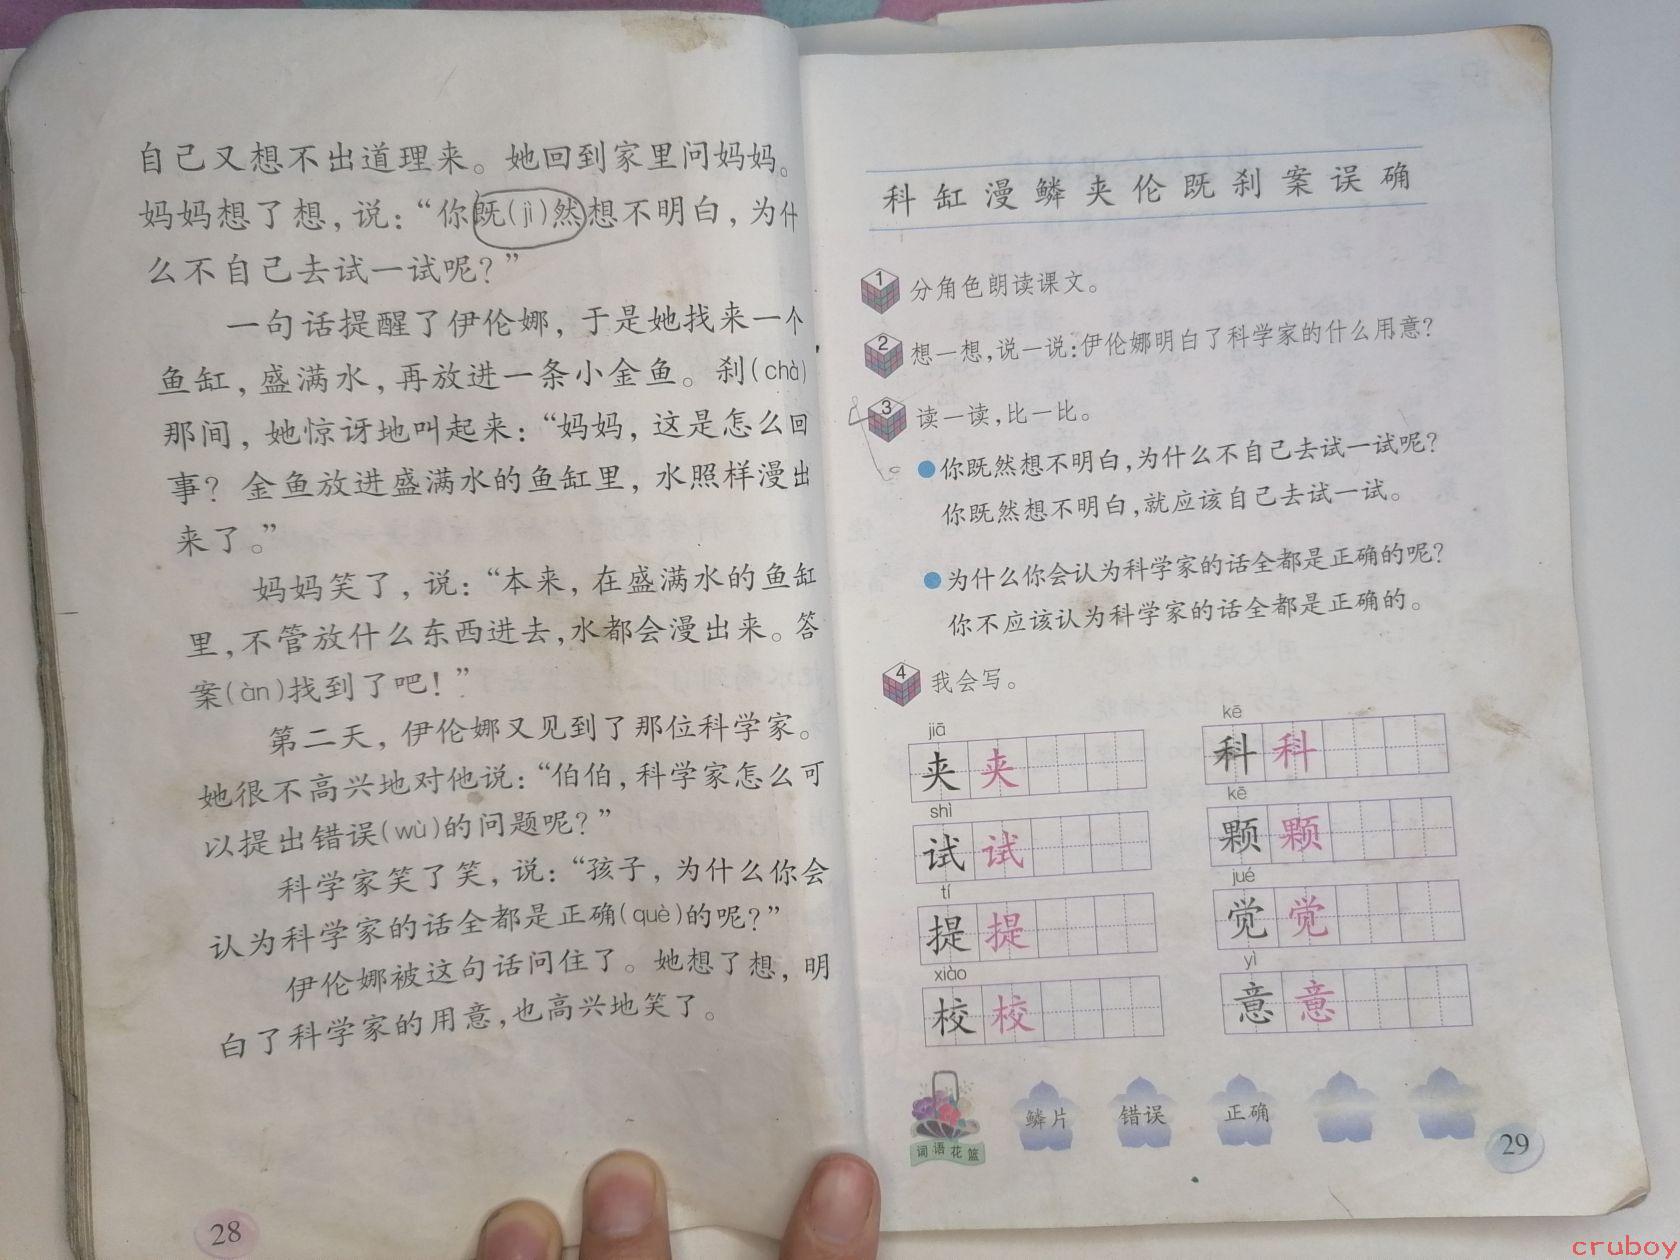 自己又想不出道理来。她回到家里问妈妈。
妈妈想了想，说：“你既(jì)然想不明白，为什
么不自己去试一试呢？”
一句话提醒了伊伦娜，于是她找来一个
鱼缸，盛满水，再放进一条小金鱼。刹(chà)
那间，她惊讶地叫起来：“妈妈，这是怎么回
事？金鱼放进盛满水的鱼缸里，水照样漫出
来了。”
妈妈笑了，说：“本来，在盛满水的鱼缸
里，不管放什么东西进去，水都会漫出来。答
案(àn)找到了吧！”
第二天，伊伦娜又见到了那位科学家。
她很不高兴地对他说：“伯伯，科学家怎么可
以提出错误(wù)的问题呢？”
科学家笑了笑，说：“孩子，为什么你会
认为科学家的话全都是正确(què)的呢？”
伊伦娜被这句话问住了。她想了想，明
白了科学家的用意，也高兴地笑了。
28
科 缸 漫 鳞 夹 伦 既 刹 案 误 确
1 分角色朗读课文。
2 想一想，说一说：伊伦娜明白了科学家的什么用意？
3 读一读，比一比。
●你既然想不明白，为什么不自己去试一试呢？
你既然想不明白，就应该自己去试一试。
●为什么你会认为科学家的话全都是正确的呢？
你不应该认为科学家的话全都是正确的。
4 我会写。
jiā kē
夹 夹 科 科
shì kē
试 试 颗 颗
tí jué
提 提 觉 觉
xiào yì
校 校 意 意
鳞片 错误 正确
词语花篮
29
cruboy